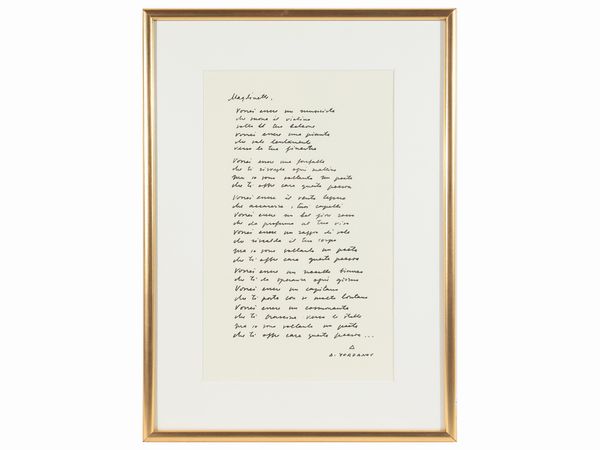 Vorrei essere un musicista
che suona il violino
sotto il tuo balcone
Vorrei essere una pianta
che sale lentamente
verso la tua finestra
Vorrei essere una farfalla
che ti risveglia ogni mattina
ma io sono soltanto un poeta
che ti offre cara questa poesia
Vorrei essere il vento leggero
che accarezza i tuoi capelli
Vorrei essere un bel fiore rosso
che da profumo al tuo viso
Vorrei essere un raggio di sole
che riscalda il tuo corpo
ma io sono soltanto un poeta
che ti offre cara questa poesia
Vorrei essere un
che ti da speranza ogni giorno
Vorrei essere un capitano
che ti porta con se molto lontano
Vorrei essere un cosmonauta
che ti trascina verso le stelle
ma io sono soltanto un poeta
che ti offre cara questa poesia...